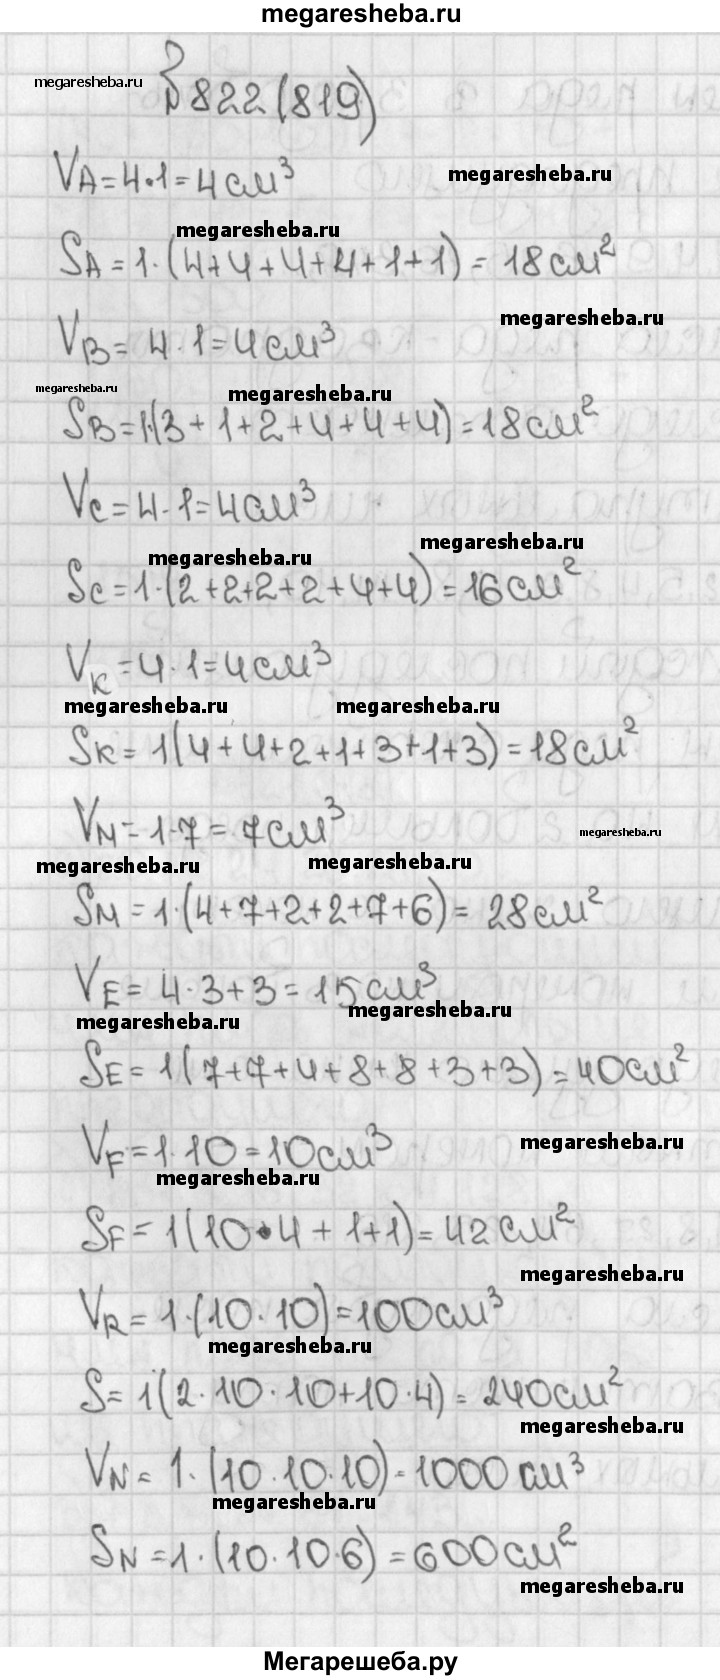 megaresheba.ru
megaresheba.ru
№822(819)
V_A=4·1=4см³
megaresheba.ru
megaresheba.ru
S_A=1·(4+4+4+4+1+1)=18см²
megaresheba.ru
V_B=4·1=4см³
megaresheba.ru
megaresheba.ru
S_B=1·(3+1+2+4+4+4)=18см²
V_C=4·1=4см³
megaresheba.ru
megaresheba.ru
S_C=1·(2+2+2+2+4+4)=16см²
V_K=4·1=4см³
megaresheba.ru megaresheba.ru
S_K=1(4+4+2+1+3+1+3)=18см²
V_M=1·7=7см³
megaresheba.ru
megaresheba.ru megaresheba.ru
S_M=1·(4+7+2+2+7+6)=28см²
V_E=4·3+3=15см³
megaresheba.ru
megaresheba.ru
S_E=1(7+7+4+8+8+3+3)=40см²
V_F=1·10=10см³
megaresheba.ru
megaresheba.ru
S_F=1(10·4+1+1)=42см²
megaresheba.ru
V_R=1·(10·10)=100см³
megaresheba.ru
S=1(2·10·10+10·4)=240см²
megaresheba.ru
V_N=1·(10·10·10)=1000см³
megaresheba.ru
S_N=1·(10·10·6)=600см²
megaresheba.ru
Мегарешеба.ру